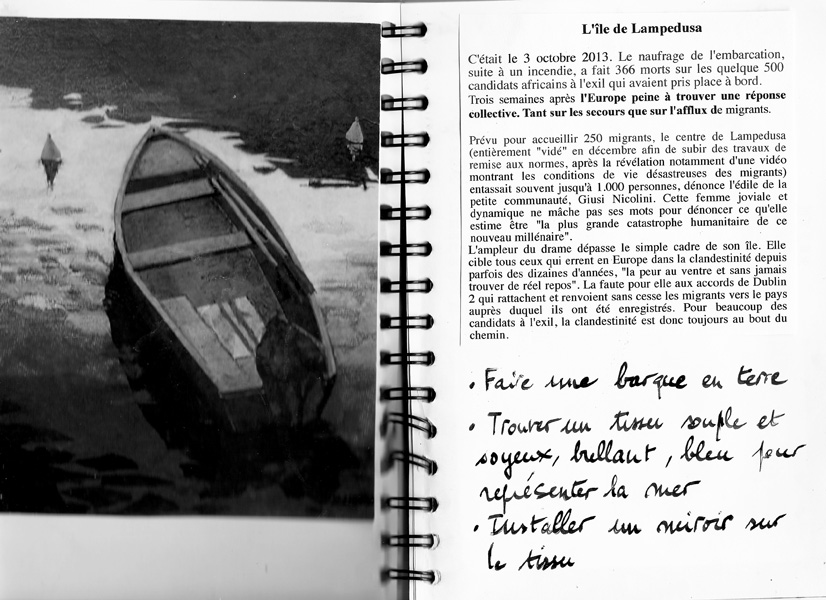 L'île de Lampedusa
C'était le 3 octobre 2013. Le naufrage de l'embarcation,
suite à un incendie, a fait 366 morts sur les quelque 500
candidats africains à l'exil qui avaient pris place à bord.
Trois semaines après l'Europe peine à trouver une réponse
collective. Tant sur les secours que sur l'afflux de migrants.
Prévu pour accueillir 250 migrants, le centre de Lampedusa
(entièrement "vidé" en décembre afin de subir des travaux de
remise aux normes, après la révélation notamment d'une vidéo
montrant les conditions de vie désastreuses des migrants)
entassait souvent jusqu'à 1.000 personnes, dénonce l'édile de la
petite communauté, Giusi Nicolini. Cette femme joviale et
dynamique ne mâche pas ses mots pour dénoncer ce qu'elle
estime être "la plus grande catastrophe humanitaire de ce
nouveau millénaire".
L'ampleur du drame dépasse le simple cadre de son île. Elle
cible tous ceux qui errent en Europe dans la clandestinité depuis
parfois des dizaines d'années, "la peur au ventre et sans jamais
trouver de réel repos". La faute pour elle aux accords de Dublin
2 qui rattachent et renvoient sans cesse les migrants vers le pays
auprès duquel ils ont été enregistrés. Pour beaucoup des
candidats à l'exil, la clandestinité est donc toujours au bout du
chemin.
• Faire une barque en terre
• Trouver un tissu souple et
soyeux, brillant, bleu pour
représenter la mer
• Installer un miroir sur
le tissu